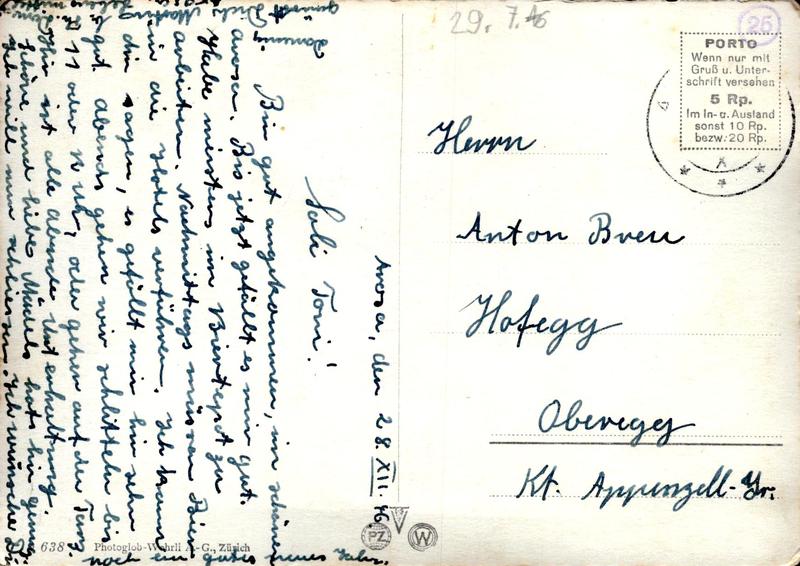 29. 7. 46
25
PORTO
Wenn nur mit
Gruß u. Unter-
schrift versehen
5 Rp.
Im In- u. Ausland
sonst 10 Rp.
bezw. 20 Rp.
Herrn
Anton Breu
Hofegg
Oberegg
Kt. Appenzell-
Arosa, den 28. XII. 46
Toni!
Bin gut angekommen, im schönen
Arosa. Bis jetzt gefällt es mir gut.
Habe minstens im zu
arbeiten. Nachmittags müssen
in die Hotels verführen. Ich kann
dir sagen, es gefällt mir hir sehr
gut. Abends gehen wir schlitteln bis
11 oder 12 Uhr, oder gehen auf den Tanz.
Hir ist alle Abende Unterhaltung.
Schöne und libe Mädels hats hir genug.
Ich will nun schliessen. Ich wünsche Dir
noch ein gutes neues Jahr.
638 Photoglob-Wehrli A.-G., Zürich
PZ W